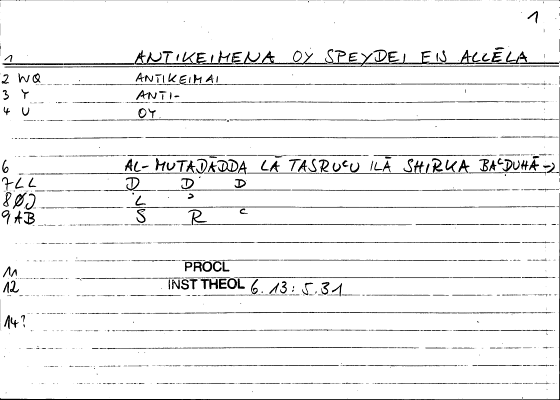 1
1 ANTIKEIMENA OY SPEYDEI EIS ALLĒLA
2 WQ ANTIKEIMAI
3 Y ANTI-
4 U OY
6 AL-MUTAḌĀDDA LĀ TASRUʿU ILĀ SHIRKA BAʿḌUHĀ →
7 LL Ḍ D D
8 ØJ L ʾ
9 AB S R ʿ
11 PROCL
12 INST THEOL 6.13:5.31
14?